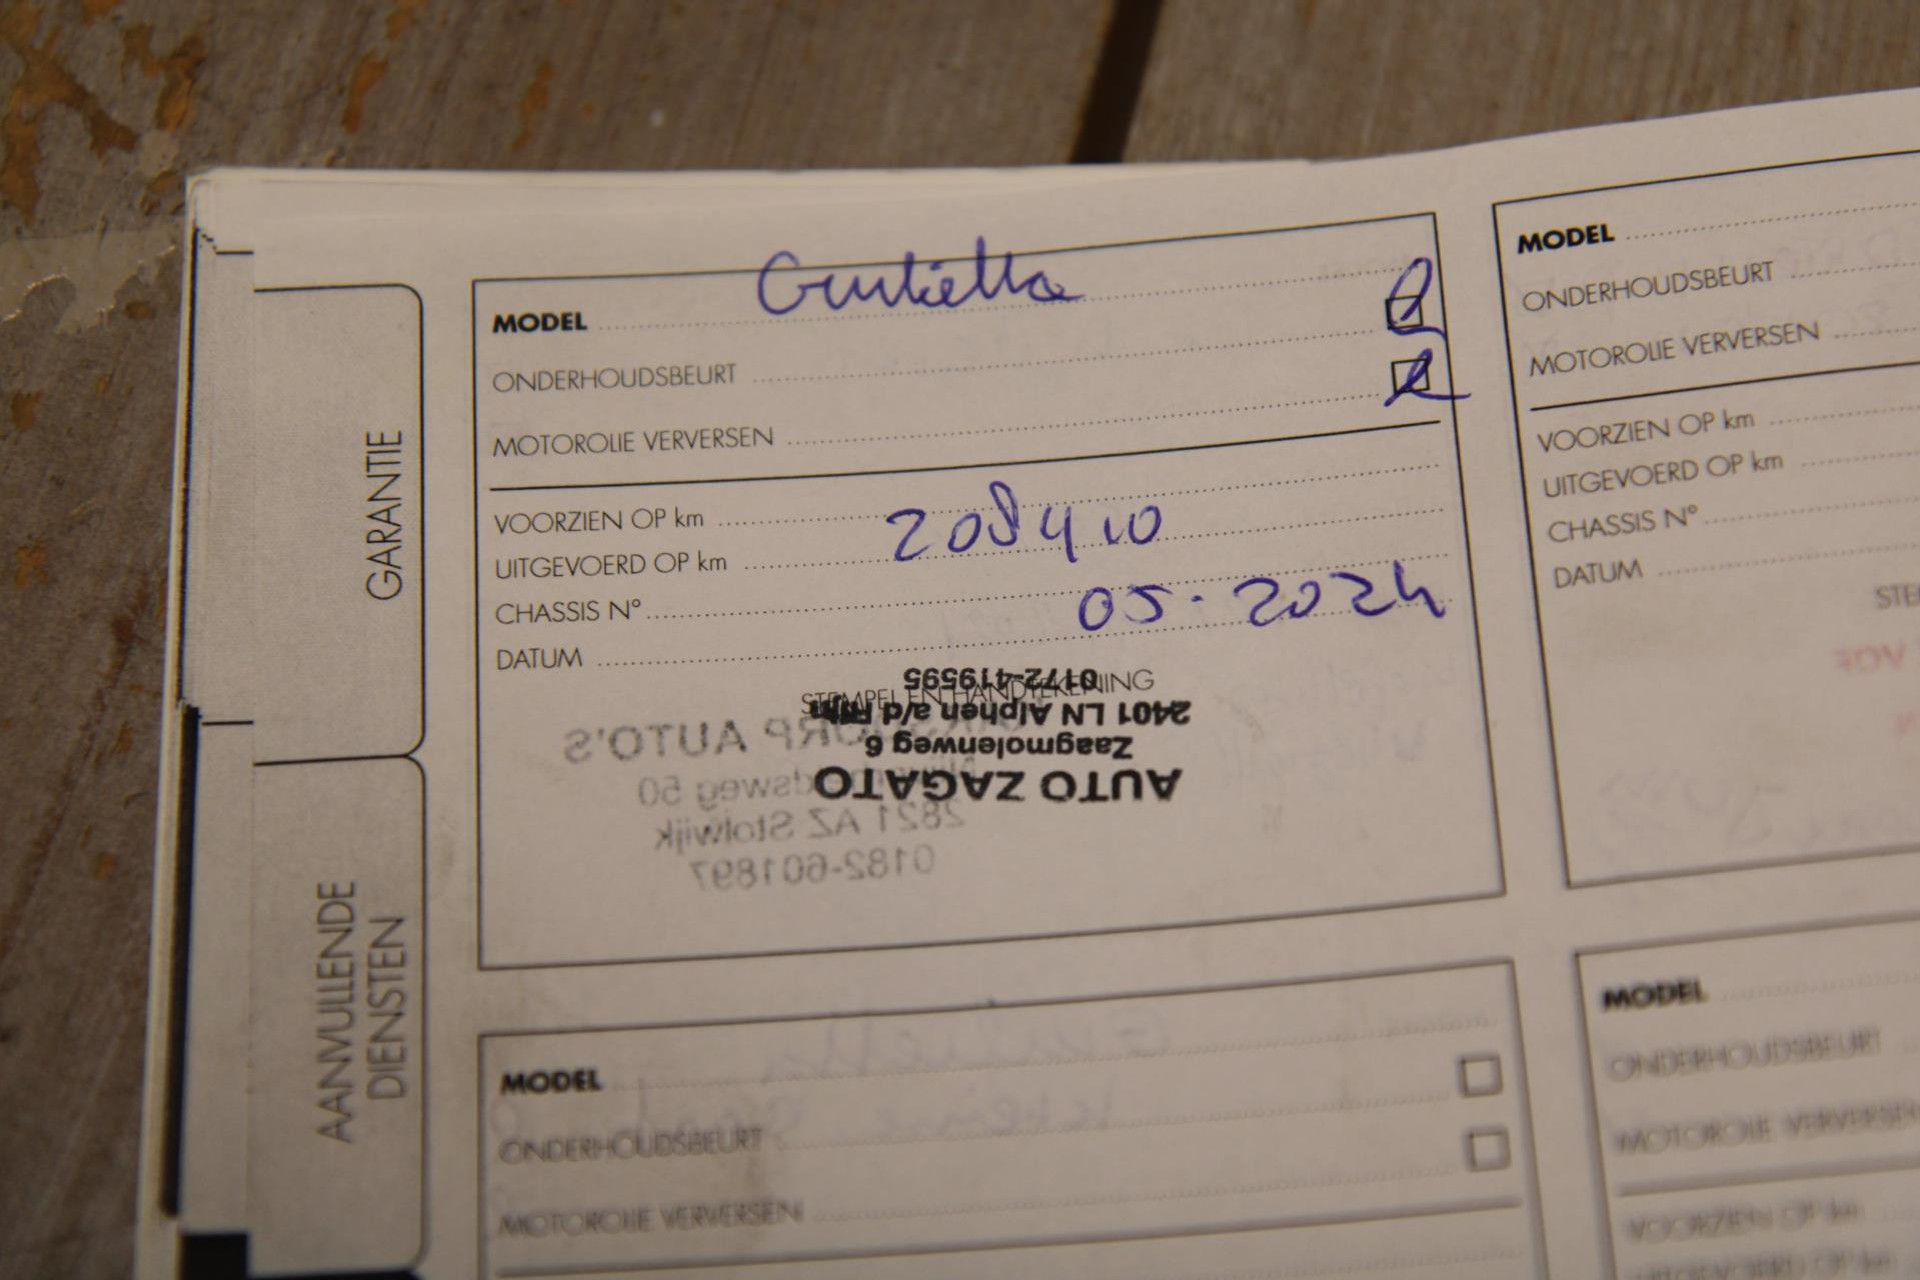 GARANTIE
AANVULLENDE
DIENSTEN
MODEL Giulietta
ONDERHOUDSBEURT
MOTOROLIE VERVERSEN
VOORZIEN OP km
UITGEVOERD OP km 208410
CHASSIS N°
DATUM 05-2024
STEMPEL EN HANDTEKENING
AUTO ZAGATO
Zaagmolenweg 6
2401 LN Alphen a/d Rijn
0172-419595
AUTO'S
weg 50
2821 AZ Stolwijk
0182-601897
MODEL
ONDERHOUDSBEURT
MOTOROLIE VERVERSEN
VOORZIEN OP km
UITGEVOERD OP km
CHASSIS N°
DATUM
STE
VOF
MODEL
ONDERHOUDSBEURT
MOTOROLIE VERVERSEN
MODEL
ONDERHOUDSBEURT
MOTOROLIE VERVERSEN
VOORZIEN OP km
UITGEVOERD OP km